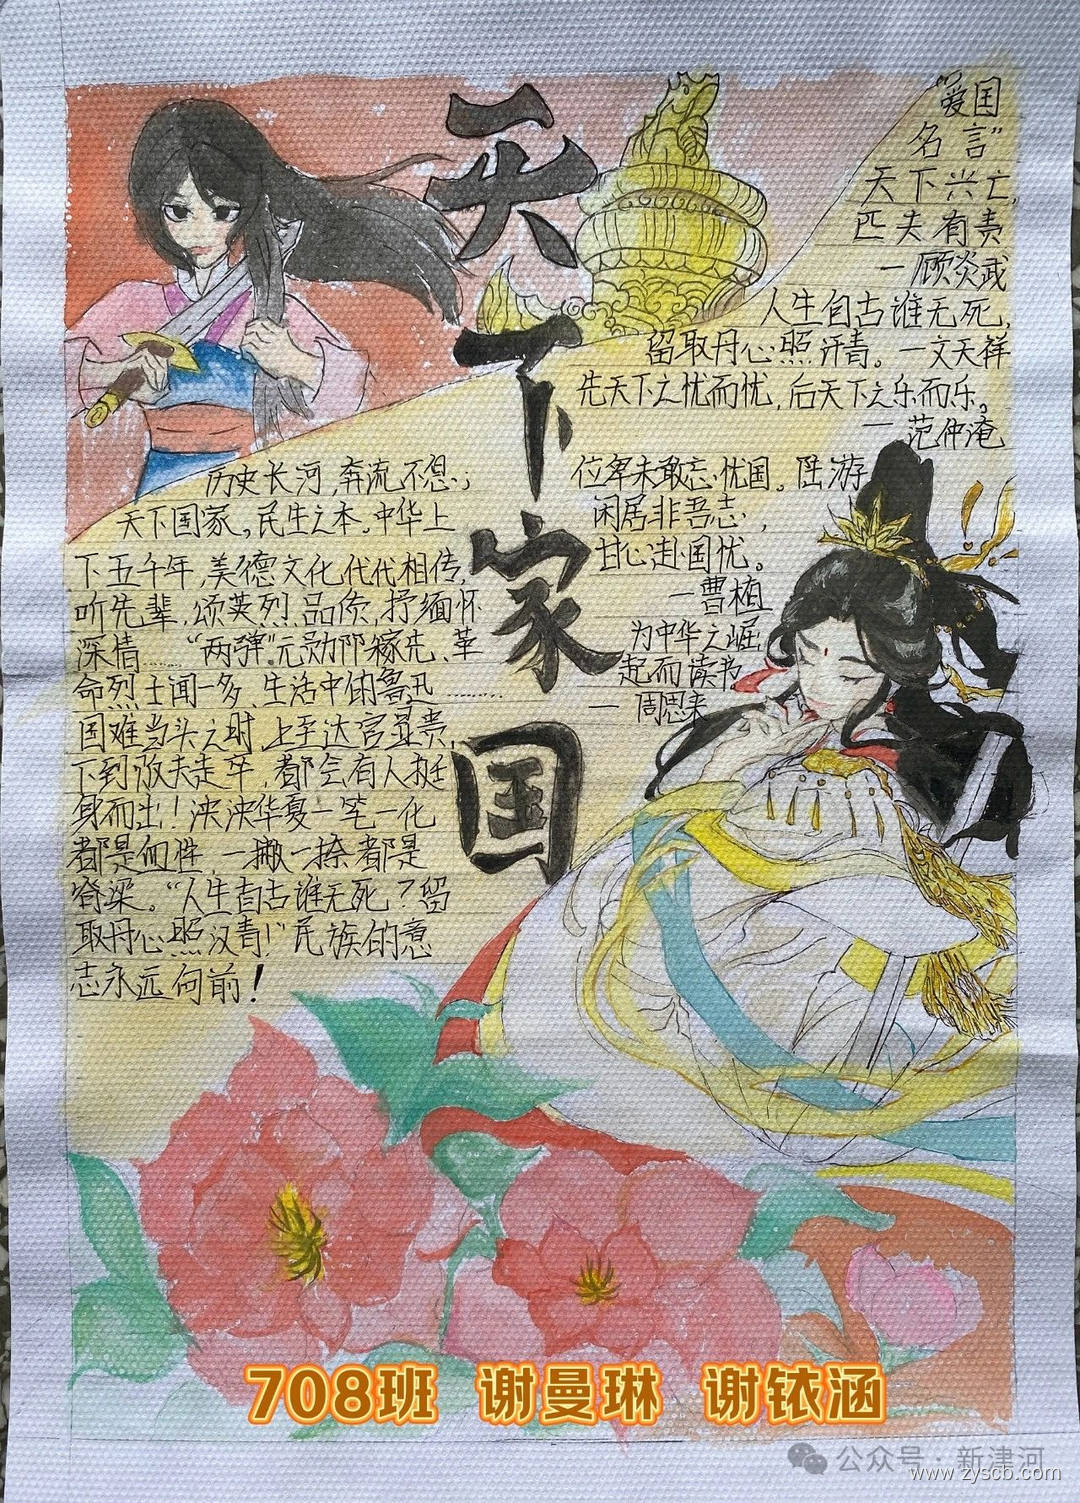 天下家国
"爱国
名言"
天下兴亡,
匹夫有责
—顾炎武
人生自古谁无死,
留取丹心照汗青。—文天祥
先天下之忧而忧,后天下之乐而乐。
—范仲淹
位卑未敢忘忧国。陆游
闲居非吾志,
甘心赴国忧。
—曹植
为中华之崛
起而读书
—周恩来
历史长河,奔流不息;
天下国家。民生之本。中华上
下五千年,美德文化代代相传,
听先辈,颂英烈,品质,抒缅怀
深情……"两弹"元勋邓稼先、革
命烈士闻一多、生活中的鲁迅………
国难当头之时,上至达官显贵,
下到贩夫走卒,都会有人挺
身而出!泱泱华夏一笔一化
都是血性,一撇一捺都是
脊梁。"人生自古谁无死?留
取丹心照汉青!"民族的意
志永远向前!
708班 谢曼琳 谢铱涵
公众号·新津河
www.zyscb.com